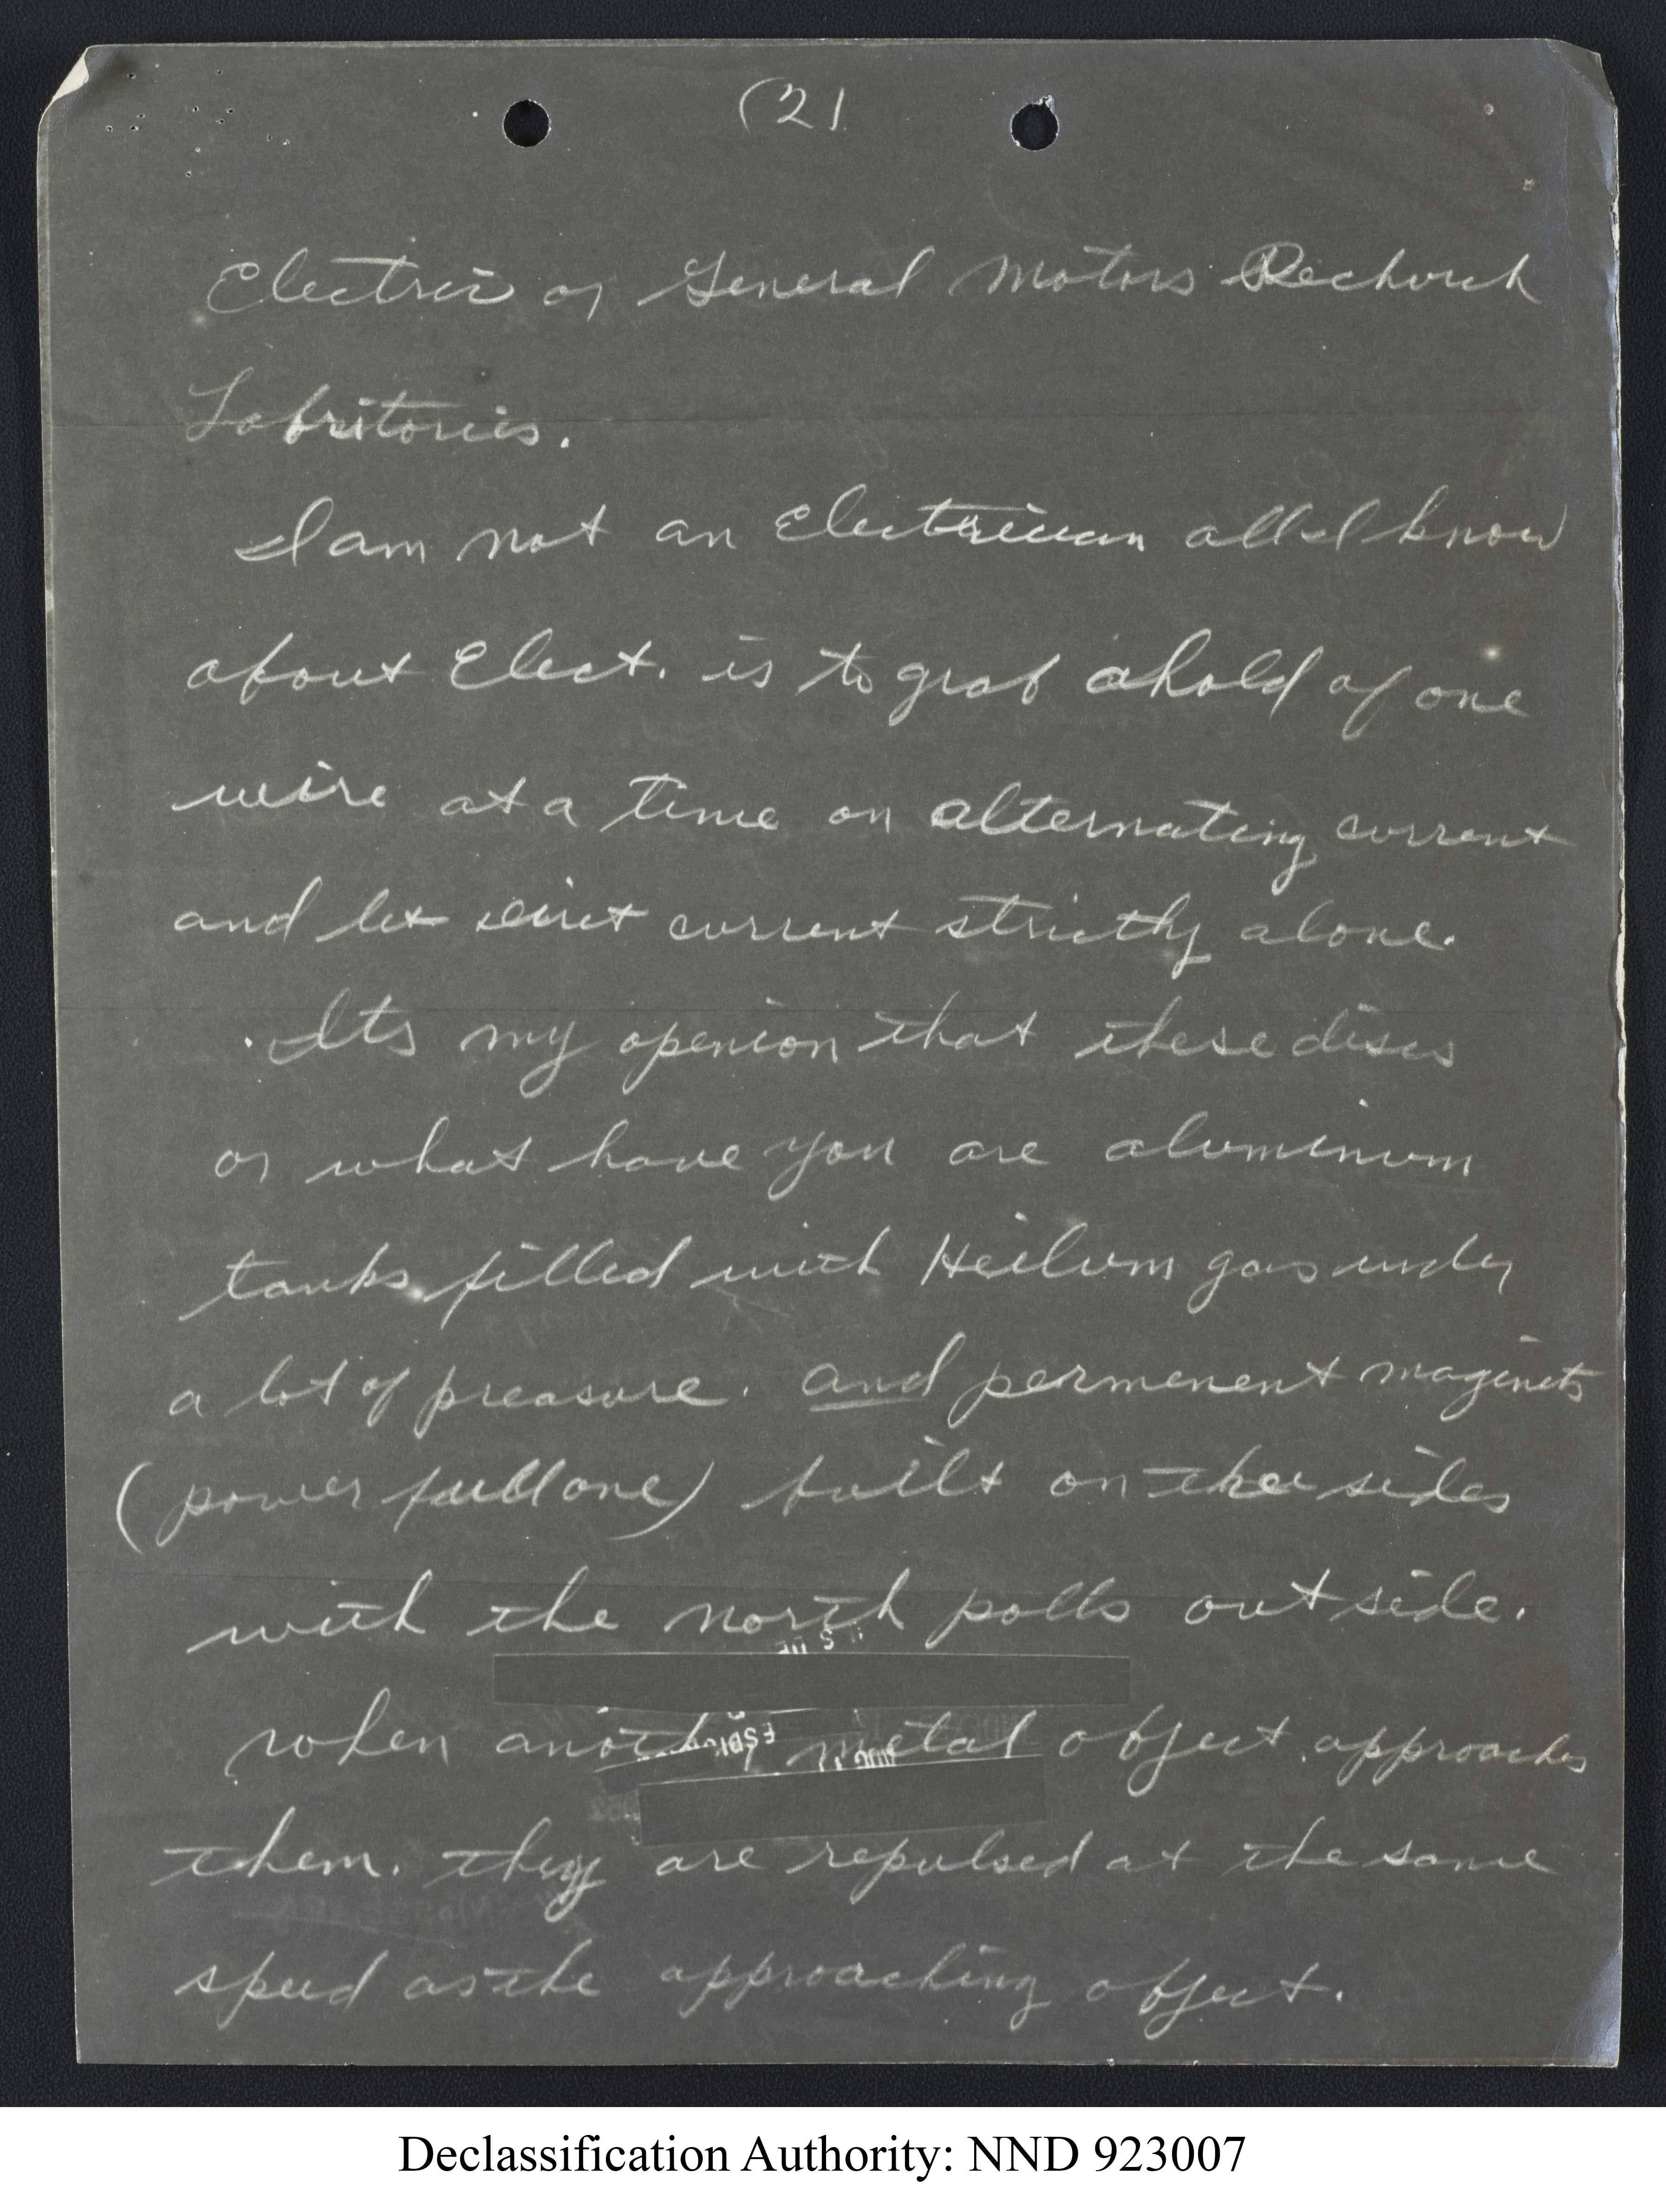 (2)
Electric or General Motors Rechurch
Labritories.
I am not an Electrician all I know
about Elect. is to grab ahold of one
wire at a time on alternating current
and let dirct current strictly alone.
Its my openion that these discs
or what have you are aluminum
tanks filled with Heilum gas under
a lot of preasure. and permenent maginets
(power full one) built on the sides
with the north polls outside.
when another metal object approaches
them. they are repulsed at the same
speed as the approaching object.
Declassification Authority: NND 923007